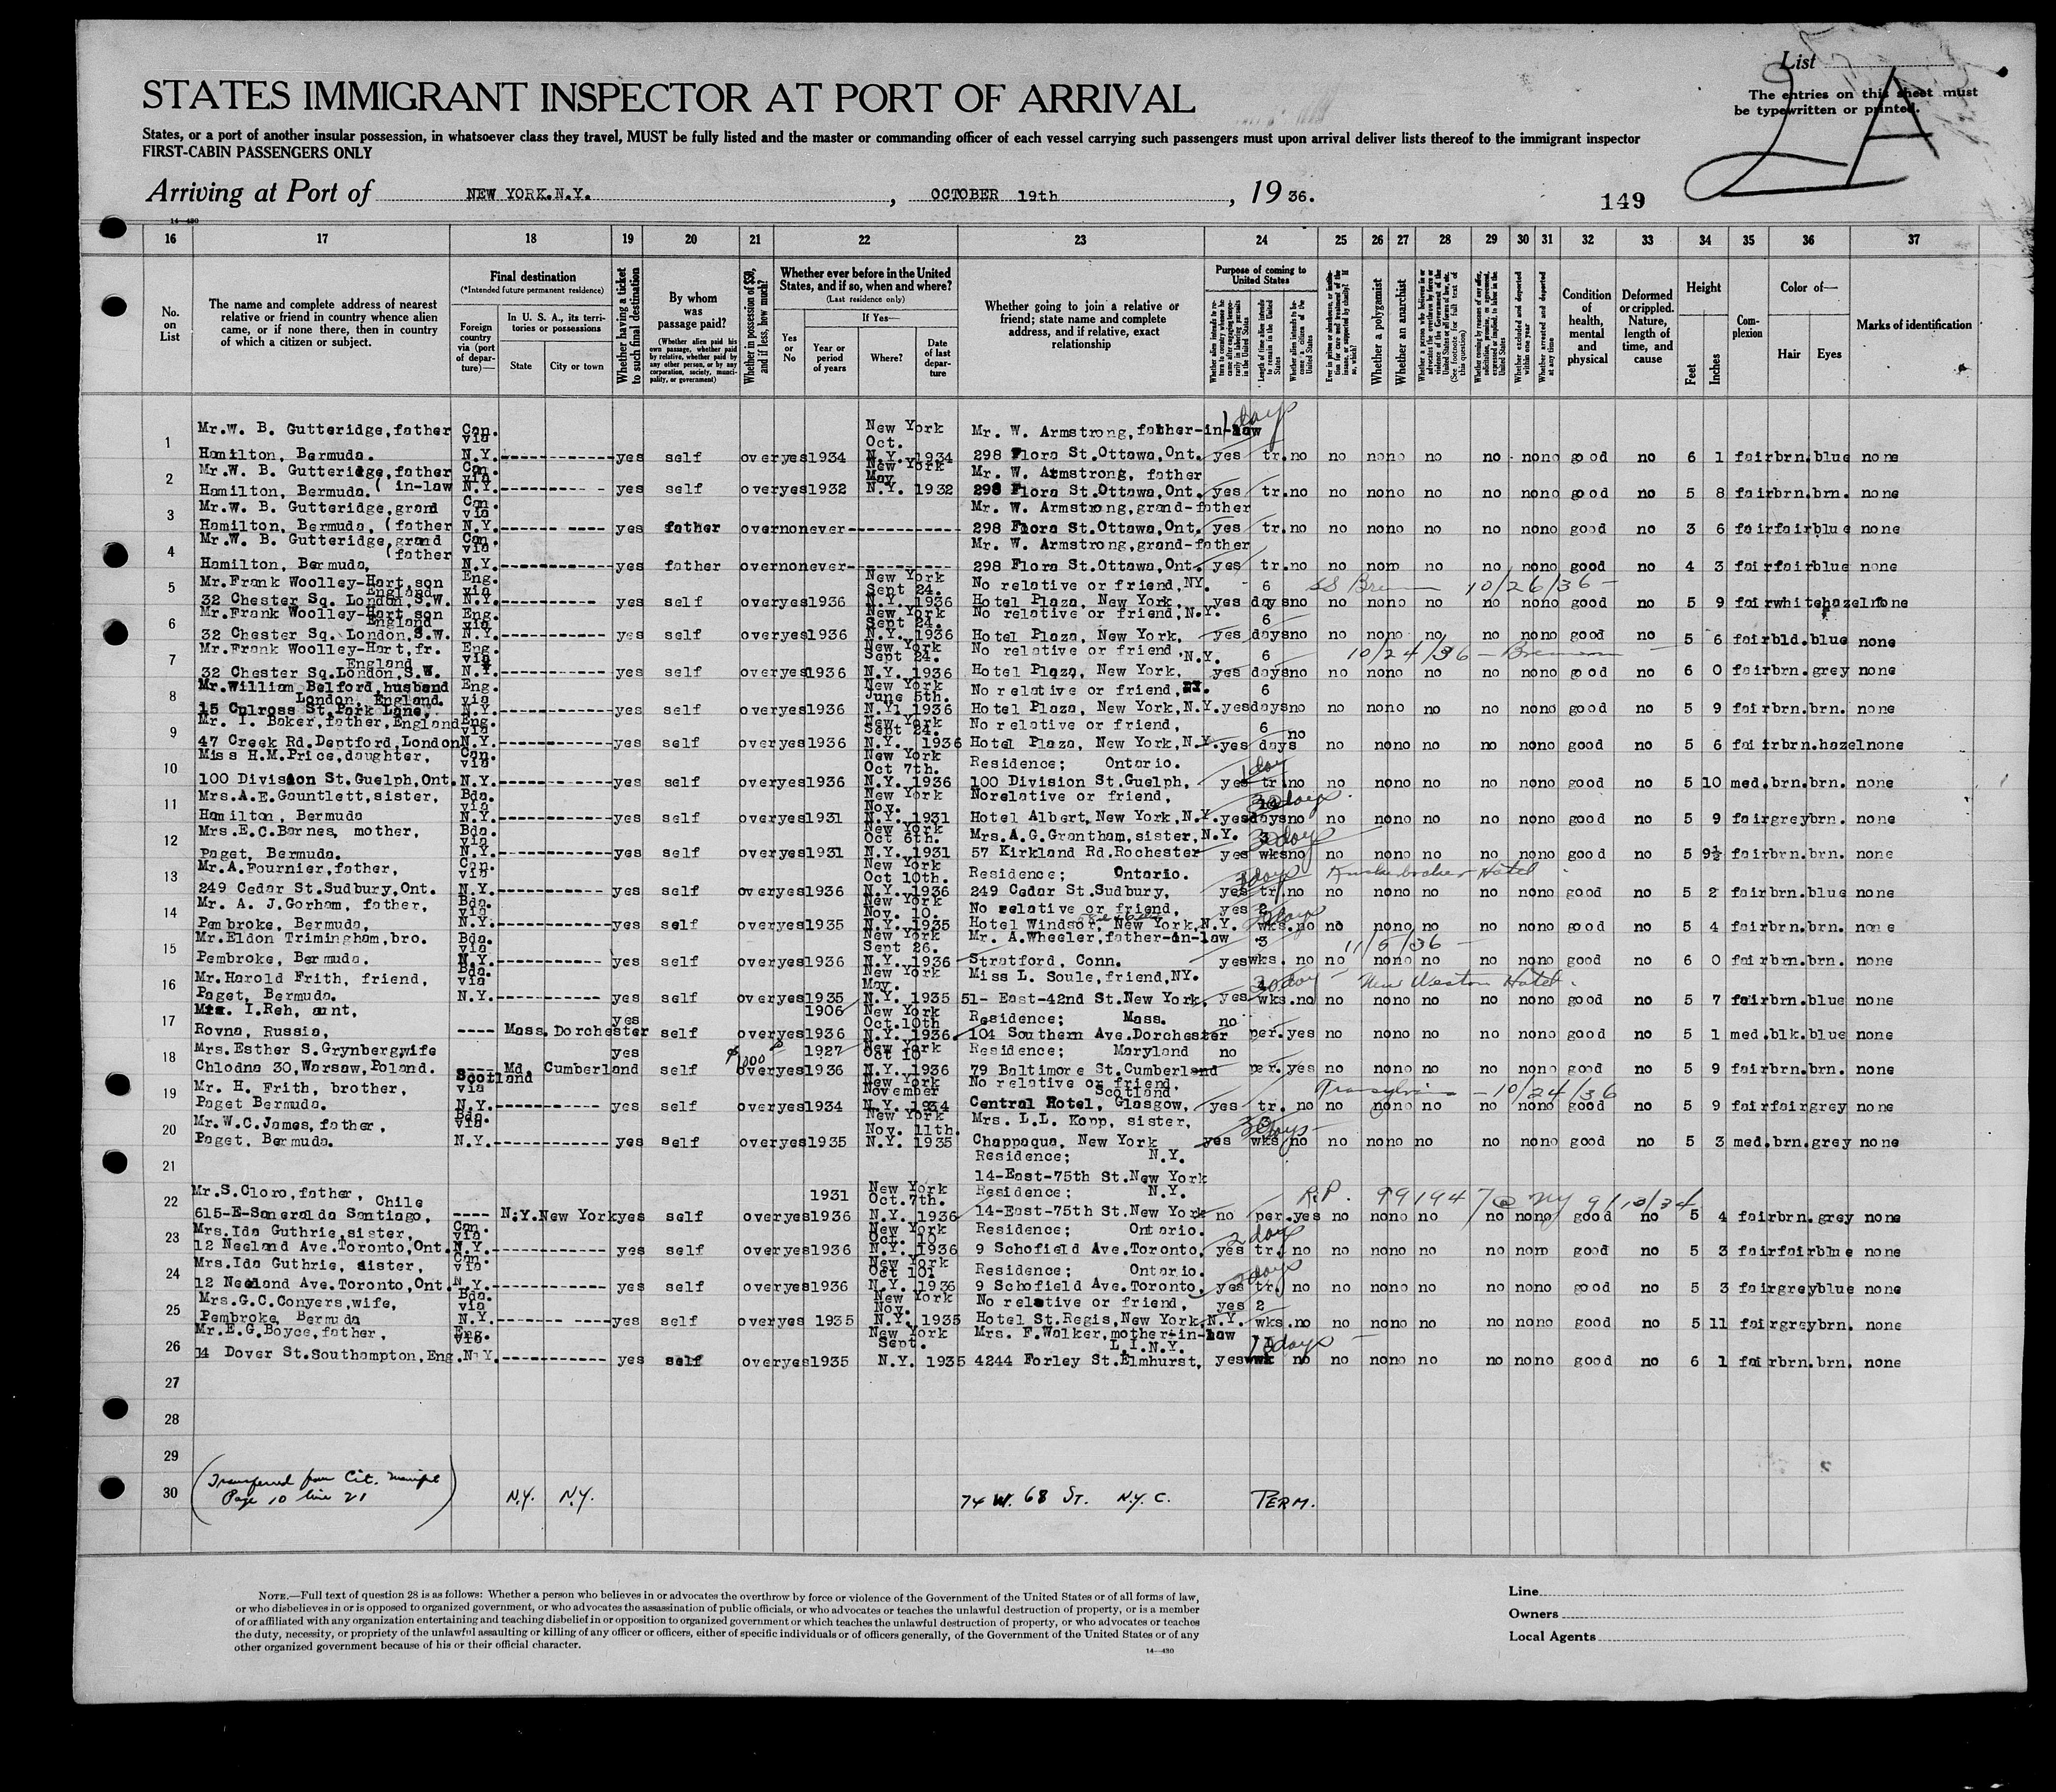 List
The entries on this sheet must
be typewritten or printed.
2A
STATES IMMIGRANT INSPECTOR AT PORT OF ARRIVAL
States, or a port of another insular possession, in whatsoever class they travel, MUST be fully listed and the master or commanding officer of each vessel carrying such passengers must upon arrival deliver lists thereof to the immigrant inspector
FIRST-CABIN PASSENGERS ONLY
Arriving at Port of NEW YORK.N.Y. , OCTOBER 19th , 19 36.
149
14-430
16 17 18 19 20 21 22 23 24 25 26 27 28 29 30 31 32 33 34 35 36 37
No. on List
The name and complete address of nearest relative or friend in country whence alien came, or if none there, then in country of which a citizen or subject.
Final destination
(*Intended future permanent residence)
Foreign country via (port of departure)—
In U. S. A., its territories or possessions
State City or town
Whether having a ticket to such final destination
By whom was passage paid?
(Whether alien paid his own passage, whether paid by relative, whether paid by any other person, or by any corporation, society, municipality, or government)
Whether in possession of $50, and if less, how much?
Whether ever before in the United States, and if so, when and where?
(Last residence only)
Yes or No
If Yes—
Year or period of years
Where?
Date of last departure
Whether going to join a relative or friend; state name and complete address, and if relative, exact relationship
Purpose of coming to United States
Whether a polygamist
Whether an anarchist
Condition of health, mental and physical
Deformed or crippled. Nature, length of time, and cause
Height
Feet Inches
Complexion
Color of—
Hair Eyes
Marks of identification
1 Mr.W. B. Gutteridge,father Can. via New York Oct. Mr. W. Armstrong,father-in-law 1 day
Hamilton, Bermuda. N.Y. yes self over yes 1934 N.Y. 1934 298 Flora St.Ottawa,Ont. yes tr. no no no no no no no no good no 6 1 fair brn. blue none
2 Mr.W. B. Gutteridge,father Can. via New York May Mr. W. Armstrong, father
Hamilton, Bermuda. (in-law N.Y. yes self over yes 1932 N.Y. 1932 298 Flora St.Ottawa,Ont. yes tr. no no no no no no no no good no 5 8 fair brn. brn. none
3 Mr.W. B. Gutteridge,grand Can. via Mr. W. Armstrong,grand-father
Hamilton, Bermuda, (father N.Y. yes father over no never 298 Flora St.Ottawa,Ont. yes tr. no no no no no no no no good no 3 6 fair fair blue none
4 Mr.W. B. Gutteridge,grand (father Can. via Mr. W. Armstrong,grand-father
Hamilton, Bermuda, N.Y. yes father over no never 298 Flora St.Ottawa,Ont. yes tr. no no no no no no no no good no 4 3 fair fair blue none
5 Mr.Frank Woolley-Hart,son England Eng. via New York Sept 24. No relative or friend,NY. 6 SS Bremen 10/26/36
32 Chester Sq. London,S.W. N.Y. yes self over yes 1936 N.Y. 1936 Hotel Plaza, New York, yes days no no no no no no no no good no 5 9 fair white hazel none
6 Mr.Frank Woolley-Hart,son England Eng. via New York Sept 24. No relative or friend,N.Y. 6
32 Chester Sq. London,S.W. N.Y. yes self over yes 1936 N.Y. 1936 Hotel Plaza, New York, yes days no no no no no no no no good no 5 6 fair bld. blue none
7 Mr.Frank Woolley-Hart,fr. England Eng. via New York Sept 24. No relative or friend,N.Y. 6 10/24/36 - Bremen
32 Chester Sq.London,S.W. N.Y. yes self over yes 1936 N.Y. 1936 Hotel Plaza, New York, yes days no no no no no no no no good no 6 0 fair brn. grey none
8 Mr.William Belford,husband London, England. Eng. via New York June 5th. No relative or friend,NY. 6
15 Culross St,Park Lane, N.Y. yes self over yes 1936 N.Y. 1936 Hotel Plaza, New York,N.Y. yes days no no no no no no no no good no 5 9 fair brn. brn. none
9 Mr. I. Baker,father,England Eng. via New York Sept 24. No relative or friend, 6
47 Creek Rd.Deptford,London N.Y. yes self over yes 1936 N.Y. 1936 Hotel Plaza, New York,N.Y. yes days no no no no no no no no good no 5 6 fair brn. hazel none
10 Miss H.M.Price,daughter, Can. via New York Oct 7th. Residence; Ontario. 1 day
100 Division St.Guelph,Ont. N.Y. yes self over yes 1936 N.Y. 1936 100 Division St.Guelph, yes tr. no no no no no no no no good no 5 10 med. brn. brn. none
11 Mrs.A.E.Gauntlett,sister, Bda. via New York Nov. Norelative or friend, 30 days
Hamilton, Bermuda N.Y. yes self over yes 1931 N.Y. 1931 Hotel Albert,New York,N.Y. yes days no no no no no no no no good no 5 9 fair grey brn. none
12 Mrs.E.C.Barnes, mother, Bda. via New York Oct 6th. Mrs.A.G.Grantham,sister,N.Y. 3 30 days
Paget, Bermuda. N.Y. yes self over yes 1931 N.Y. 1931 57 Kirkland Rd.Rochester yes wks no no no no no no no no good no 5 9½ fair brn. brn. none
13 Mr.A.Fournier,father, Can. via New York Oct 10th. Residence; Ontario. days Knickerbocker Hotel
249 Cedar St.Sudbury,Ont. N.Y. yes self over yes 1936 N.Y. 1936 249 Cedar St.Sudbury, yes tr. no no no no no no no no good no 5 2 fair brn. blue none
14 Mr. A. J.Gorham, father, Bda. via New York Nov. 10. No relative or friend, yes 2 days
Pembroke, Bermuda, N.Y. yes self over yes 1935 N.Y. 1935 Hotel Windsor, New York,N.Y. wks. no no no no no no no no good no 5 4 fair brn. brn. none
15 Mr.Eldon Trimingham,bro. Bda. via New York Sept 26. Mr. A.Wheeler,father-in-law 3 11/6/36
Pembroke, Bermuda. N.Y. yes self over yes 1936 N.Y. 1936 Stratford, Conn. yes wks. no no no no no no no no good no 6 0 fair brn. brn. none
16 Mr.Harold Frith, friend, Bda. via New York May. Miss L. Soule,friend,NY. 30 day New Weston Hotel.
Paget, Bermuda. N.Y. yes self over yes 1935 N.Y. 1935 51- East-42nd St.New York, yes wks. no no no no no no no no good no 5 7 fair brn. blue none
17 Mrs. I.Reh, aunt, yes 1906 New York Oct.10th Residence; Mass. no
Rovna, Russia, ---- Mass. Dorchester self over yes 1936 N.Y. 1936. 104 Southern Ave.Dorchester per. yes no no no no no no no good no 5 1 med. blk. blue none
18 Mrs.Esther S.Grynberg,wife yes $1000 1927 New York Oct 10 Residence; Maryland no
Chlodna 30,Warsaw,Poland. ---- Md. Cumberland self over yes 1936 N.Y. 1936 79 Baltimore St.Cumberland per. yes no no no no no no no good no 5 9 fair brn. brn. none
19 Mr. H. Frith, brother, Scotland via New York November No relative or friend, Scotland Transylvania - 10/24/36
Paget Bermuda. N.Y. yes self over yes 1934 N.Y. 1934 Central Hotel, Glasgow, yes tr. no no no no no no no no good no 5 9 fair fair grey none
20 Mr.W.C.James,father, Bda. via New York Nov. 11th. Mrs. L.L. Kopp, sister, 30 days
Paget, Bermuda. N.Y. yes self over yes 1935 N.Y. 1935 Chappaqua, New York yes wks no no no no no no no no good no 5 3 med. brn. grey none
21 Residence; N.Y.
14-East-75th St.New York
22 Mr.S.Cloro,father, Chile 1931 New York Oct.7th. Residence; N.Y. R.P.
615-E-Smeralda Santiago, ---- N.Y. New York yes self over yes 1936 N.Y. 1936 14-East-75th St.New York no per. yes no no no no no no no good no 5 4 fair brn. grey none
23 Mrs.Ida Guthrie,sister, Can. via New York Oct. 10 Residence; Ontario. 2 day
12 Neeland Ave.Toronto,Ont. N.Y. yes self over yes 1936 N.Y. 1936 9 Schofield Ave.Toronto, yes tr. no no no no no no no no good no 5 3 fair fair blue none
24 Mrs.Ida Guthrie, sister, Can. via New York Oct 10. Residence; Ontario. 2 days
12 Neeland Ave.Toronto,Ont. N.Y. yes self over yes 1936 N.Y. 1936 9 Schofield Ave.Toronto, yes tr. no no no no no no no no good no 5 3 fair grey blue none
25 Mrs.G.C.Conyers,wife, Bda. via New York Nov. No relative or friend, yes 2
Pembroke, Bermuda N.Y. yes self over yes 1935 N.Y. 1935 Hotel St.Regis,New York,N.Y. wks. no no no no no no no no good no 5 11 fair grey brn. none
26 Mr.E.G.Boyce,father, Eng. via New York Sept. Mrs. F.Walker,mother-in-law L.I.N.Y. days
14 Dover St.Southampton,Eng. N.Y. yes self over yes 1935 N.Y. 1935 4244 Forley St.Elmhurst, yes wk no no no no no no no no good no 6 1 fair brn. brn. none
27
28
29
30 (Transferred from Cit. Manifest
Page 10 line 21) N.Y. N.Y. 74 W. 68 ST. N.Y.C. PERM.
NOTE.—Full text of question 28 is as follows: Whether a person who believes in or advocates the overthrow by force or violence of the Government of the United States or of all forms of law,
or who disbelieves in or is opposed to organized government, or who advocates the assassination of public officials, or who advocates or teaches the unlawful destruction of property, or is a member
of or affiliated with any organization entertaining and teaching disbelief in or opposition to organized government or which teaches the unlawful destruction of property, or who advocates or teaches
the duty, necessity, or propriety of the unlawful assaulting or killing of any officer or officers, either of specific individuals or of officers generally, of the Government of the United States or of any
other organized government because of his or their official character.
14-430
Line
Owners
Local Agents